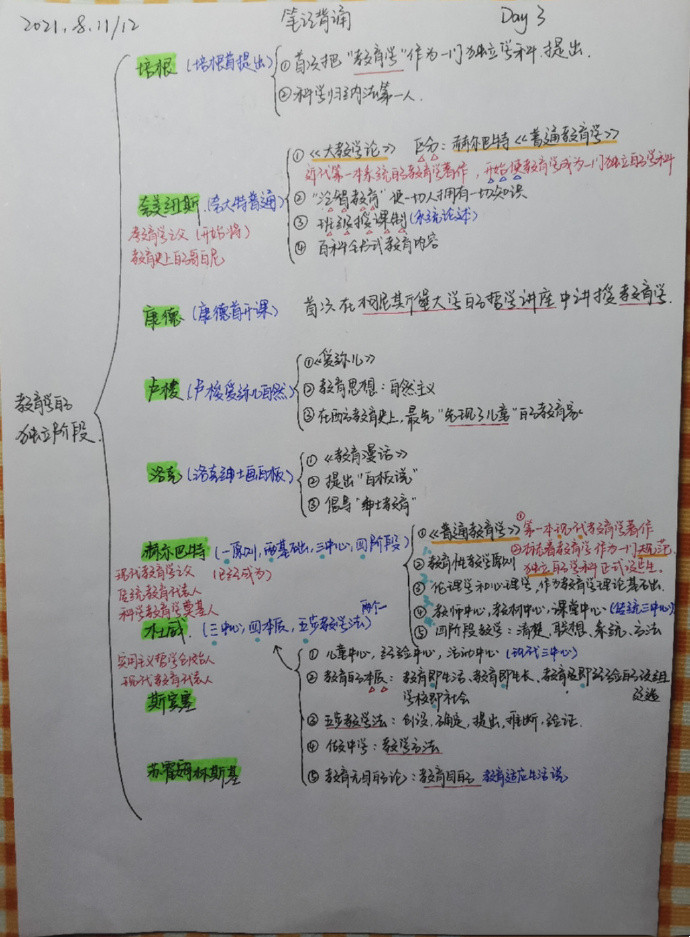 2021.8.11/12 笔试背诵 Day 3
教育学的
独立阶段.
培根 (培根首提出)
① 首次把"教育学"作为一门独立学科提出.
② 科学归纳法第一人.
夸美纽斯 (夸大特普通)
教育学之父 (开始将)
教育史上的哥白尼
① 《大教学论》 区分: 赫尔巴特《普通教育学》
近代第一本系统的教育学著作, 开始使教育学成为一门独立的学科
② "泛智教育" 使一切人拥有一切知识
③ 班级授课制 (系统论述)
④ 百科全书式教育内容
康德 (康德首开课)
首次在柯尼斯堡大学的哲学讲座中讲授教育学.
卢梭 (卢梭爱弥儿自然)
①《爱弥儿》
② 教育思想: 自然主义
③ 在西方教育史上, 最先"发现了儿童"的教育家
洛克 (洛克绅士画白板)
① 《教育漫话》
② 提出"白板说"
③ 倡导"绅士教育"
赫尔巴特 (一原则, 两基础, 三中心, 四阶段)
现代教育学之父 (已经成为)
传统教育代表人
科学教育学奠基人
①《普通教育学》 ①第一本现代教育学著作
②标志着教育学作为一门规范
独立的学科正式诞生.
② 教育性教学原则
③ 伦理学和心理学, 作为教育学理论基础.
④ 教师中心, 教材中心, 课堂中心 (传统三中心)
⑤ 四阶段教学: 清楚、联想、系统、方法
杜威 (三中心, 四本质, 五步教学法) 两个一
实用主义哲学创始人
现代教育代表人
① 儿童中心, 经验中心, 活动中心 (现代三中心)
② 教育的本质: 教育即生活、教育即生长、教育即经验的改组
改造
学校即社会
③ 五步教学法: 创设、确定, 提出, 推断, 验证.
④ 做中学: 教学方法
⑤ 教育无目的论: 教育目的 教育适应生活说
斯宾塞
苏霍姆林斯基